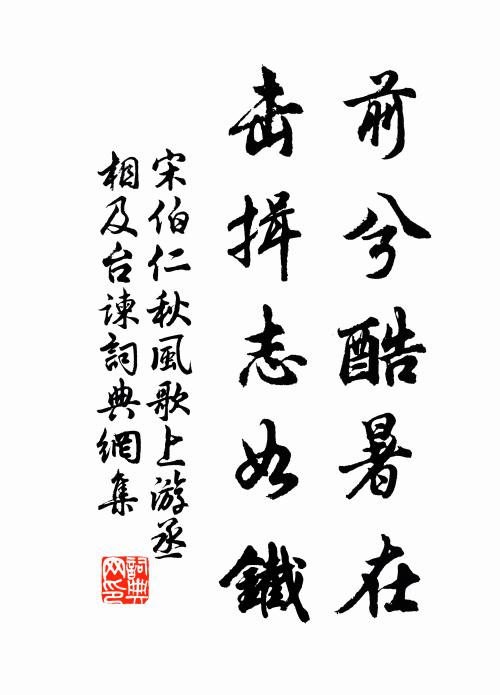 前兮酷暑在
击揖志如鐵
宋伯仁秋風歌上游丞
相及台諫詞典網集
詞典
网印